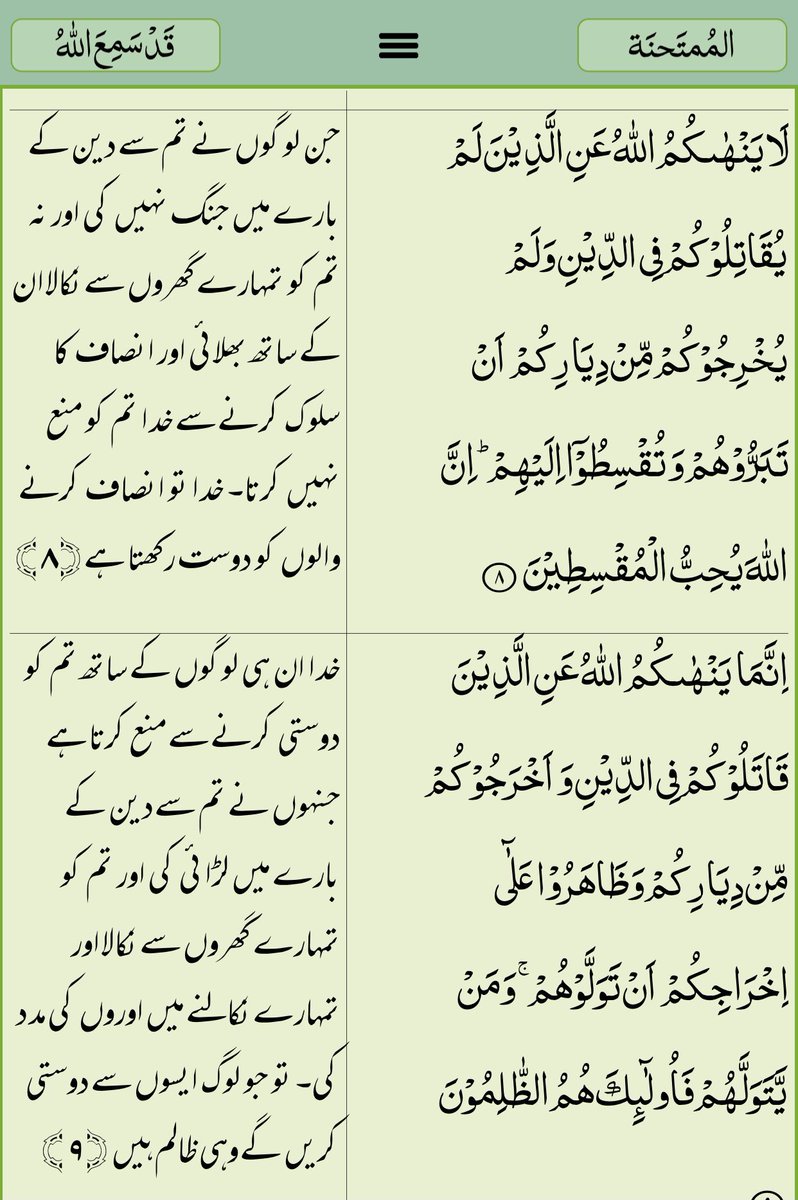 المُمتَحنَة
قَدْ سَمِعَ اللهُ
لَا يَنْهٰىكُمُ اللهُ عَنِ الَّذِيْنَ لَمْ
يُقَاتِلُوْكُمْ فِى الدِّيْنِ وَلَمْ
يُخْرِجُوْكُمْ مِّنْ دِيَارِكُمْ اَنْ
تَبَرُّوْهُمْ وَ تُقْسِطُوْۤا اِلَيْهِمْ ؕ اِنَّ
اللهَ يُحِبُّ الْمُقْسِطِيْنَ ۸
جن لوگوں نے تم سے دین کے
بارے میں جنگ نہیں کی اور نہ
تم کو تمہارے گھروں سے نکالا ان
کے ساتھ بھلائی اور انصاف کا
سلوک کرنے سے خدا تم کو منع
نہیں کرتا۔ خدا تو انصاف کرنے
والوں کو دوست رکھتا ہے ﴿۸﴾
اِنَّمَا يَنْهٰىكُمُ اللهُ عَنِ الَّذِيْنَ
قَاتَلُوْكُمْ فِى الدِّيْنِ وَ اَخْرَجُوْكُمْ
مِّنْ دِيَارِكُمْ وَظَاهَرُوْا عَلٰٓى
اِخْرَاجِكُمْ اَنْ تَوَلَّوْهُمْ ۚ وَمَنْ
يَّتَوَلَّهُمْ فَاُولٰٓٮِٕكَ هُمُ الظّٰلِمُوْنَ
خدا ان ہی لوگوں کے ساتھ تم کو
دوستی کرنے سے منع کرتا ہے
جنہوں نے تم سے دین کے
بارے میں لڑائی کی اور تم کو
تمہارے گھروں سے نکالا اور
تمہارے نکالنے میں اوروں کی مدد
کی۔ تو جو لوگ ایسوں سے دوستی
کریں گے وہی ظالم ہیں ﴿۹﴾